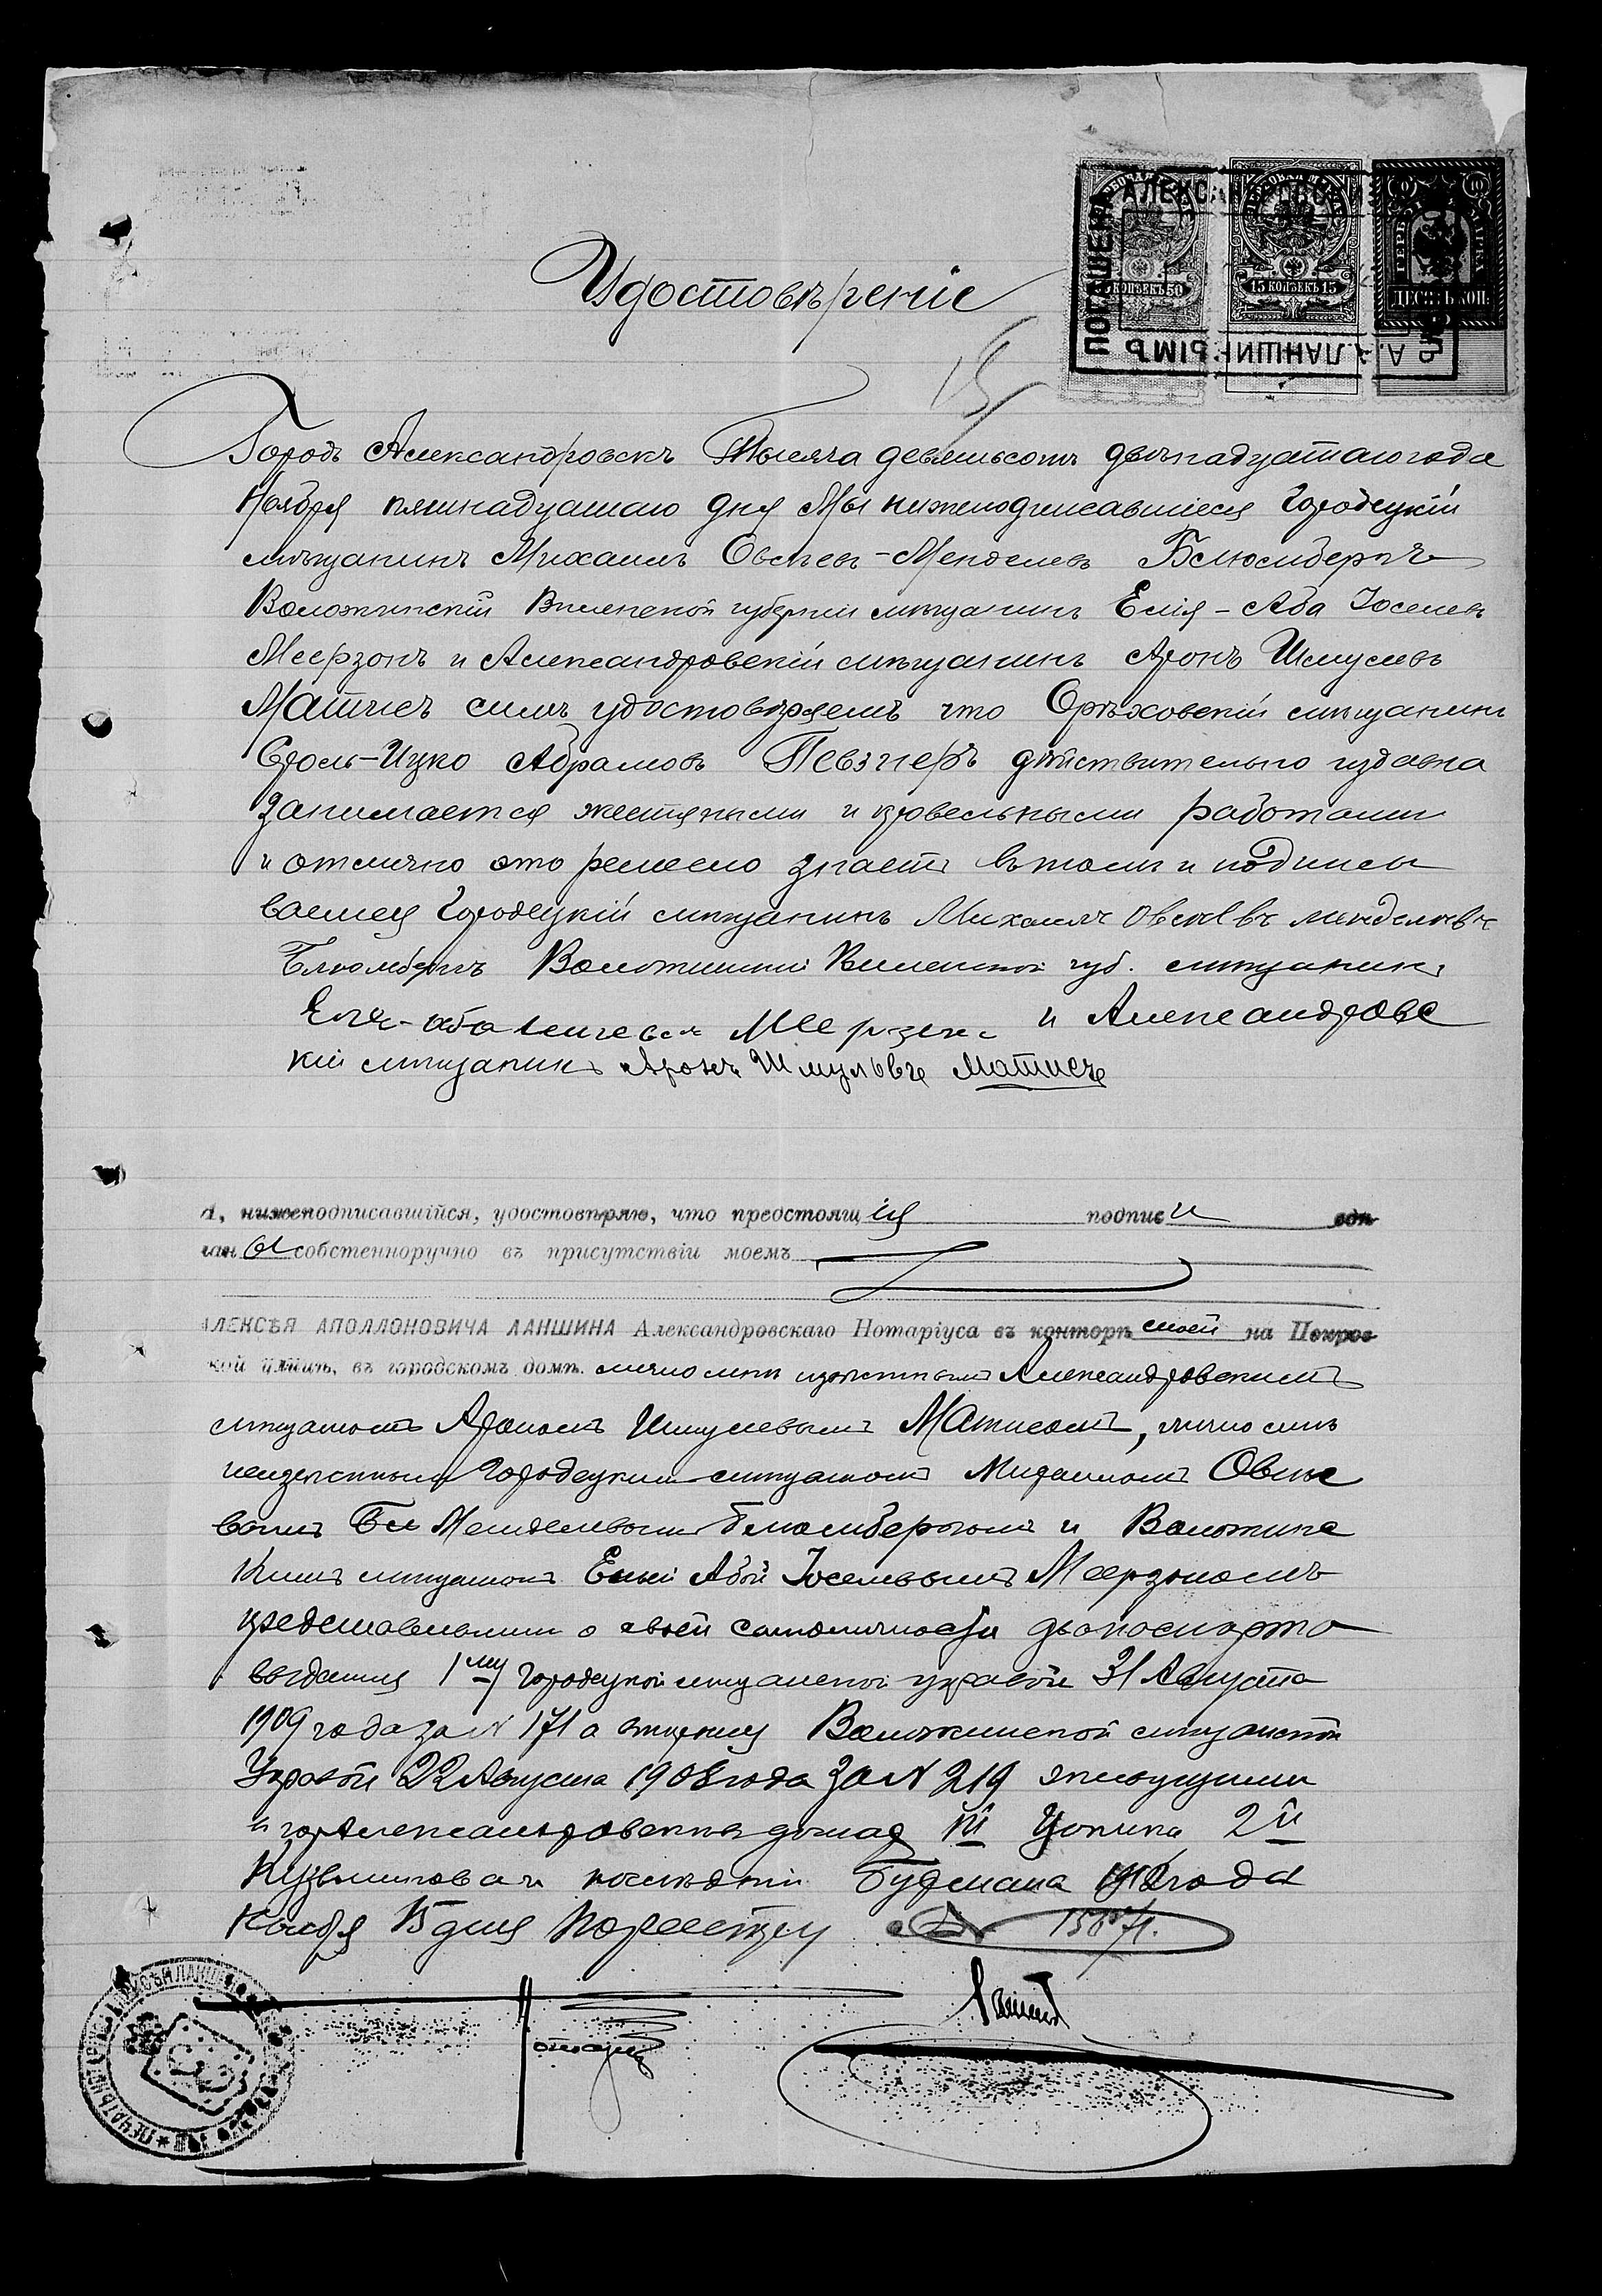 АЛЕКСАНДРОВСК
ПОГАШЕНА
КОПѢЕКЪ 50
15 КОПѢЕКЪ 15
ДЕСЯТЬ КОП.
А. А. ЛАНШИНЫМЪ
Удостовѣреніе
15
Городъ Александровскъ Тысяча девятьсотъ двѣнадцатаго года
Ноября пятнадцатаго дня Мы нижеподписавшіеся Городецкій
мѣщанинъ Михаилъ Овсѣевъ-Менделевъ Блюмбергъ
Воложинскій Виленской губерніи мѣщанинъ Елія-Аба Іоселевъ
Меерзонъ и Александровскій мѣщанинъ Аронъ Шмулевъ
Матисъ симъ удостовѣряемъ что Орѣховскій мѣщанинъ
Сроль-Ицко Абрамовъ Певзнеръ дѣйствительно издавна
занимается жестяными и кровельными работами
и отлично это ремесло знаетъ въ томъ и подписы
ваемся Городецкій мѣщанинъ Михаилъ Овсѣевъ менделевъ
Блюмбергъ Воложинскій Виленской губ. мѣщанинъ
Еля-аба Меерзонъ и Александровс
кій мѣщанинъ Аронъ Шмулевъ Матисъ
я, нижеподписавшійся, удостовѣряю, что предстоящія подписи сдѣ
ланы собственноручно въ присутствіи моемъ
АЛЕКСѢЯ АПОЛЛОНОВИЧА ЛАНШИНА Александровскаго Нотаріуса въ конторѣ моей на Покров
кой улицѣ, въ городскомъ домѣ. лично мнѣ извѣстнымъ Александровскимъ
мѣщаномъ Арономъ Шмулевымъ Матисомъ, лично мнѣ
неизвѣстными Городецкимъ мѣщаномъ Михаиломъ Овсѣе
вымъ Бл Менделевымъ Блюмбергомъ и Воложинс
кимъ мѣщаномъ Еліей Абой Іоселевымъ Меерзономъ
представившими о своей самоличности два паспорта
выданныя 1му Городецкой мѣщанской управой 31 Августа
1909 года за N 171 а второму Воложинской мѣщанской
Управой 22 Августа 1908 года за N 219 живущими
въ гор Александровскѣ въ домах 1й Цыпина 2й
Кузьминова и последній Буфмана 1912 года
Ноября 15 дня По реестру N 15671.
Нотаріусъ Ланшинъ